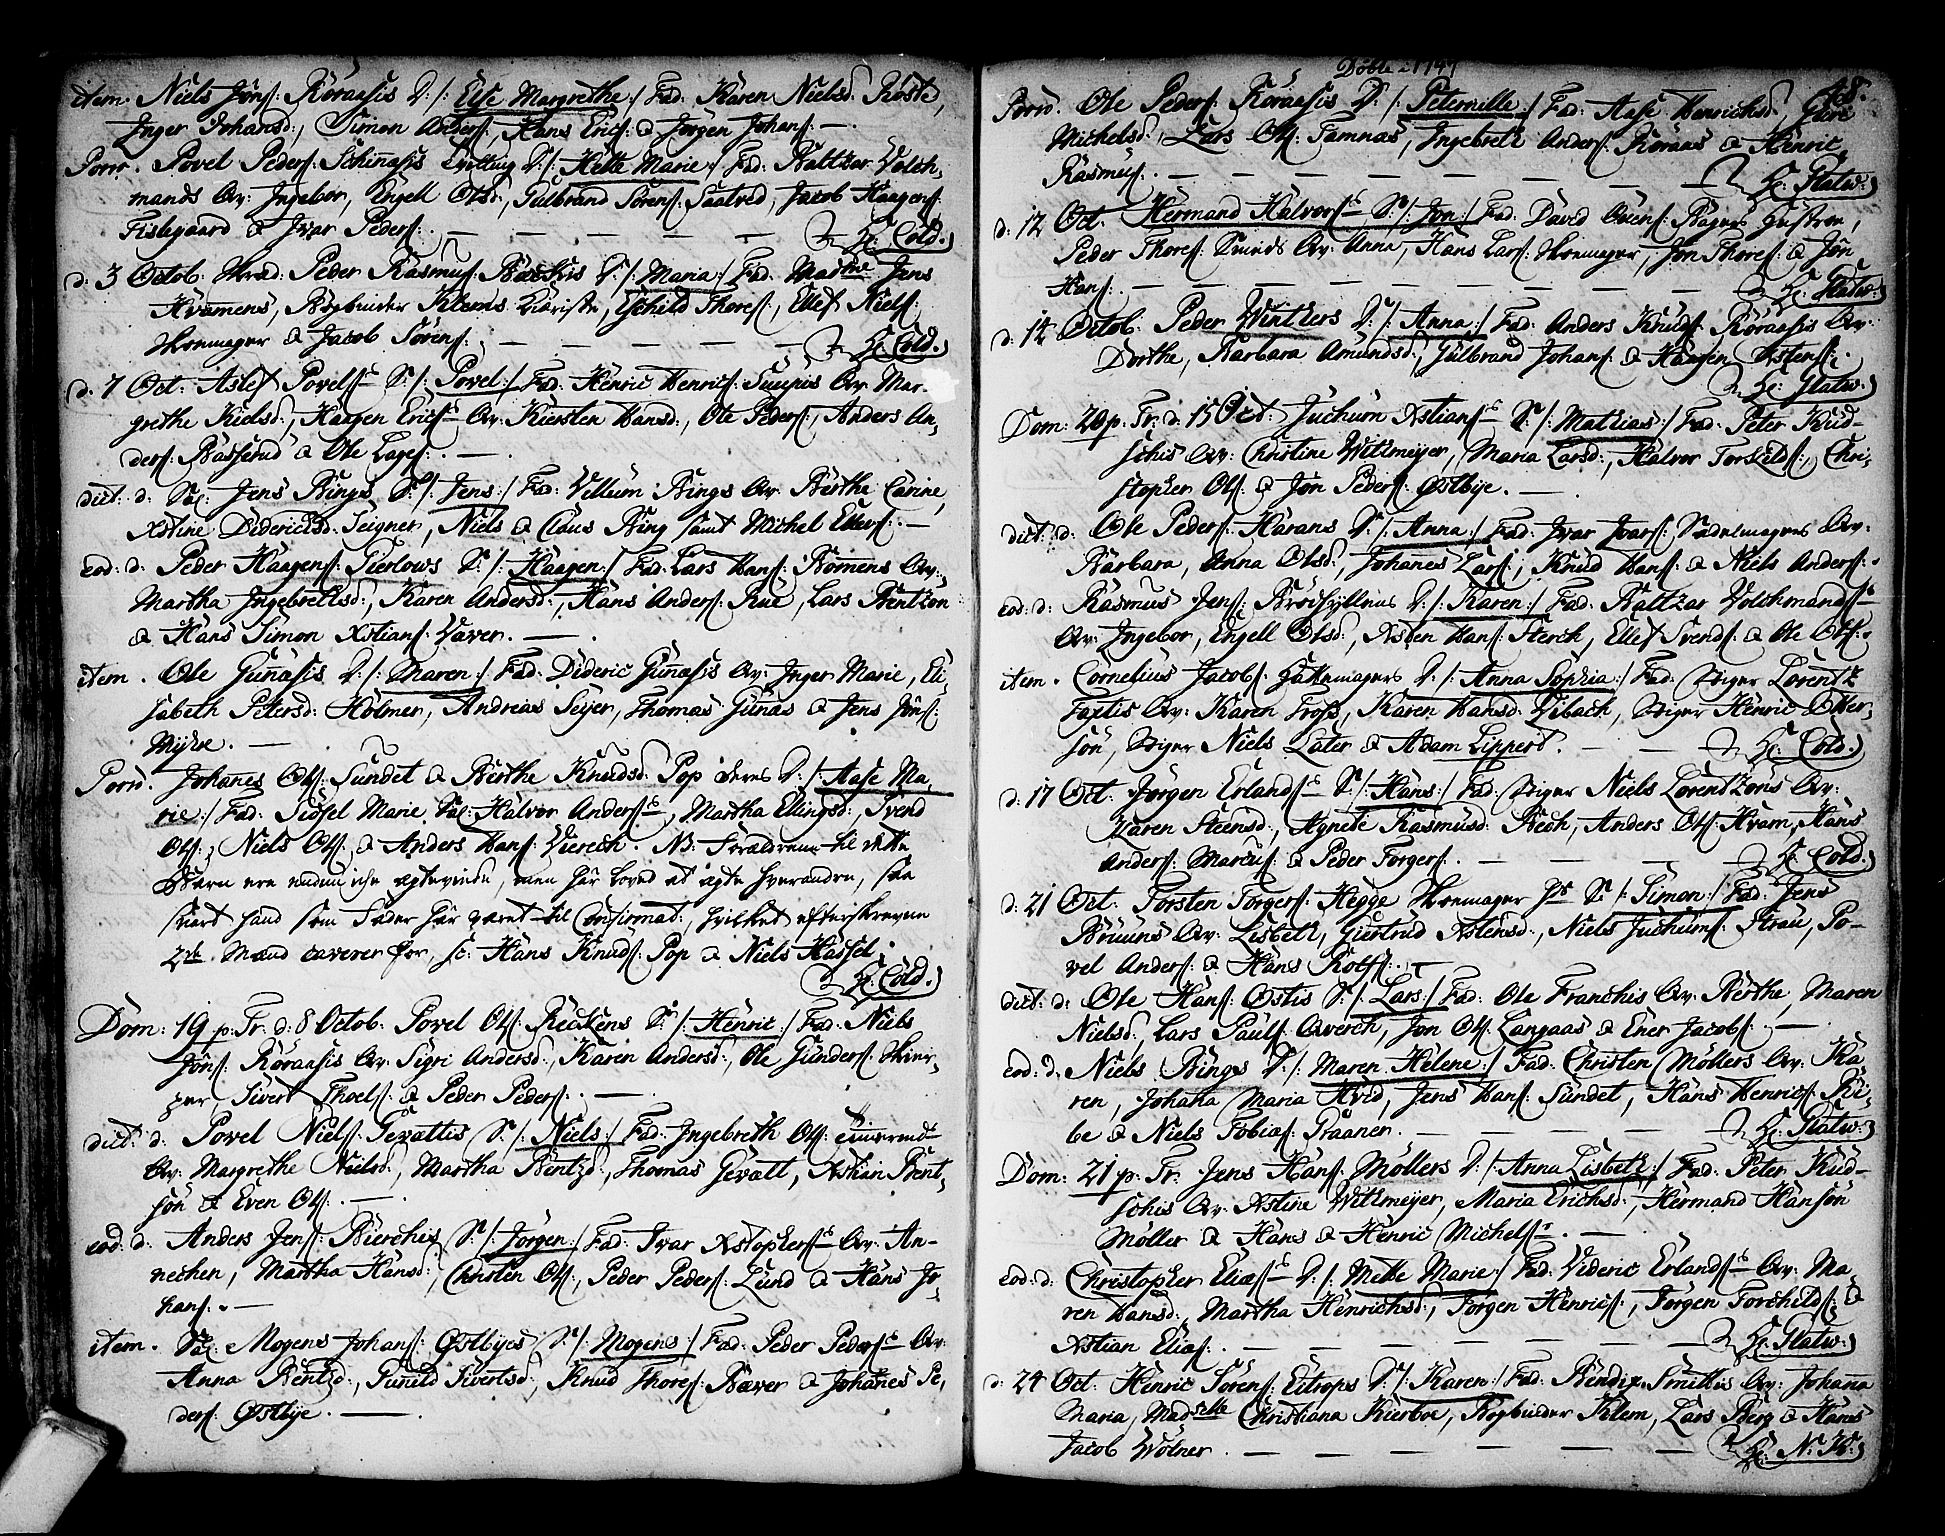 item. Niels Jøns: Røraasis D: /: Else Margrethe :/ Fad: Karen Nielsd: Röste,
Inger Johansd:, Simon Anders:, Hans Erics: & Jørgen Johans: —
Porrò. Povel Peders: Schinasis D: /: Helle Marie :/ Fad: Baltzar Volch-
mands Qv: Ingebor, Engell Olsd:, Gulbrand Sörens: Saatved, Jacob Haagens:
Fislegaard & Jvar Peders: — — — — — H: Cold.
d: 3 Octob. Peder Rasmus: Backis D: /: Maria :/ Fad. Madme Jens
Kramers, Bogbinder Klems Kiæriste, Eschild Thores:, Ellef Niels:
Skomager & Jacob Sörens: — — — — H: Cold.
d: 7 Oct: Aslef Povels: S: /: Povel :/ Fad: Henric Henrics: Qv: Mar-
grethe Nielsd:, Haagen Erics: Qv: Kiersten Hansd:, Ole Peders:, Anders An,
ders: Basserud & Ole Lages: —
dict: d: Sal: Jens Bings S: /: Jens :/ Fad: Villum Bings Qv: Berthe Carine,
Xstine Didericsd: Seigner, Niels & Claus Bing samt Michel Ellefs: —
eod: d: Peder Haagens: Pierlows S: /: Haagen :/ Fad: Lars Hans: Bömens Qv:,
Martha Ingebrethsd:, Karen Andersd:, Hans Anders: Rue, Lars Bentzon
& Hans Simon Xstians: Væver. —
item. Ole Gunasis D: /: Maren :/ Fad: Dideric Gunasis Qv: Inger Marie, Eli,
sabeth Petersd: Holmer, Andreas Seyer, Thomas Gunas & Jens Jöns:
Myhre. —
Porrò. Johanes Ols: Sundet & Berthe Knudsd: Pop deres D: /: Aase Ma,
rie :/ Fad: Sidsel Marie Sal: Halvor Anders:, Martha Ellingsd:, Svend
Ols:, Niels Ols: & Anders Hans: Viereck. NB: Forældrene til dette
Barn ere endnu icke ægteviede, men har lovet at ægte hverandre, saa
snart hand som Fader har været til Confirmat:, hvilket efterskrevne
2de Mænd caverer for, sc: Hans Knuds: Pop & Niels Hassel.
H: Cold.
Dom: 19 p. Tr: d: 8 Octob. Povel Ols: Beckens S: /: Henric :/ Fad: Niels
Jöns: Röraasis Qv: Sigri Andersd:, Karen Andersd:, Ole Gunders:
Sivert Thoels: & Peder Peders: —
dict: d: Povel Niels: Gevattis S: /: Niels :/ Fad: Ingebreth Ols:
Qv: Margrethe Nielsd:, Martha Bentzd:, Thomas Gevatt, Xstian Bent,
sön & Even Ols: —
eod: d: Anders Jens: Bierchis S: /: Jörgen :/ Fad: Ivar Xstophers: Qv: An-
nechen, Martha Hansd:, Christen Ols:, Peder Peders: Lund & Hans Jo,
hans: —
item. Sal: Mogens Johans: Östbyes S: /: Mogens :/ Fad: Peder Peders: Qv:
Anna Bentzd:, Gunild Sivertsd:, Knud Thores: Bæver & Johanes Pe,
ders: Östbye. —
Döbte 1747
48.
Porrò. Ole Peders: Röraasis D: /: Peternille :/ Fad: Aase Henrichsd:, Gure
Michelsd:, Lars Ols: Tamnas, Ingebreth Anders: Röraas & Henric
Rasmus: — — — — — H: Glatw:
d: 12 Oct. Hermand Halvors: S: /: Jon :/ Fad: David Ovens: Bagers Hustroe,
Peder Thores: Qv: Anna, Hans Lars: Skomager, Jon Thores: & Jon
Hans: — — — — — — H: Glatw:
d: 14 Octob. Peder Winthers D: /: Anna :/ Fad: Anders Knuds: Röraasis Qv:
Dorthe, Barbara Amundsd:, Gulbrand Johans: & Haagen Astens:
H: Glatw.
Dom: 20 p. Tr: d: 15 Oct: Juchum Xstians: S: /: Mathias :/ Fad: Peter Kud-
schis Qv: Christine Witzmeyer, Maria Larsd:, Halvor Torkilds:, Chri,
stopher Ols: & Jon Peders: Östbye. —
dict: d: Ole Peders: Harans D: /: Anna :/ Fad: Jvar Jvars: Sadelmagers Qv:
Barbara, Anna Olsd:, Johanes Lars:, Knud Hans: & Niels Anders:
eod: d: Rasmus Jens: D: /: Karen :/ Fad: Baltzar Volchmands:
Qv: Ingebor, Engell Olsd:, Xsten Hans: Sterch, Ellef Svends: & Ole Ols:
item. Cornelius Jacobs: Hattemagers D: /: Anna Sophia :/ Fad: Stiger Lorentz
Faxtis Qv: Karen Tross, Karen Hansd: Vibach, Stiger Henric Otter,
sön, Stiger Niels Later & Adam Lippert. — — H: Cold.
d: 17 Oct: Jörgen Erlands: S: /: Hans :/ Fad: Stiger Niels Lorentzons Qv:
Karen Steensd:, Agnete Rasmusd: Bech, Anders Ols: Hvam, Hans
Anders: Marcus: & Peder Torgers: — — — H: Cold.
d: 21 Oct. Torsten Torgers: Hegge Skomager S: /: Simon :/ Fad: Jens
Bruuns Qv: Lisbeth, Giertrud Astensd:, Niels Juchums: Strau, Po-
vel Anders: & Hans Rolfs: —
dict: d: Ole Hans: Östis S: /: Lars :/ Fad: Ole Franchis Qv: Berthe, Maren
Nielsd:, Lars Pauls: Qværch, Jon Ols: Langaas & Ener Jacobs: —
eod: d: Niels Binges D: /: Maren Helene :/ Fad: Christen Möllers Qv: Ka
ren, Johana Maria Hvid, Jens Hans: Sundet, Hans Henrics: Ri,
be & Niels Tobias: Traaner. — — — H: Glatw:
Dom: 21 p. Tr. Jens Hans: Möllers D: /: Anna Lisbeth :/ Fad: Peter Kud-
schis Qv: Xstine Witzmeyer, Maria Erichsd:, Hermand Hansön
Möller & Hans & Henric Michels: —
eod: d: Christopher Elias: D: /: Mette Marie :/ Fad: Dideric Erlands: Qv: Ma
ren Hansd:, Martha Henrichsd:, Jörgen Henrics:, Jörgen Torchilds: &
Xstian Elias: — — — — — H: Glatw:
d: 24 Oct. Henric Sörens: Eitrops D: /: Karen :/ Fad: Bendix Smittis Qv: Johana
Maria, Madselle Christiana Kierboe, Bogbinder Klem, Lars Berg & Hans
Jacob Wölner. — — — — — H: N: K: